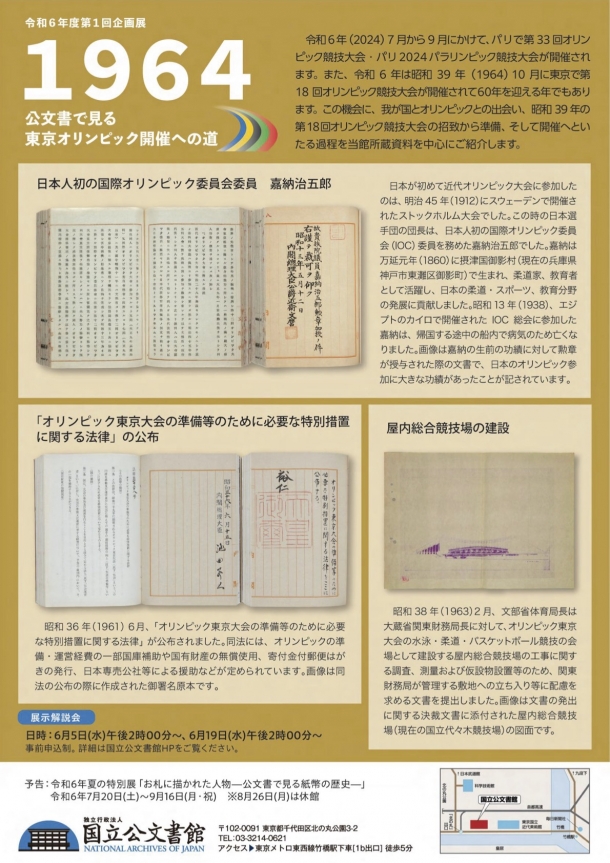 令和6年度第1回企画展
1964
公文書で見る
東京オリンピック開催への道
令和6年(2024)7月から9月にかけて、パリで第33回オリン
ピック競技大会・パリ2024パラリンピック競技大会が開催され
ます。また、令和6年は昭和39年(1964)10月に東京で第
18回オリンピック競技大会が開催されて60年を迎える年でもあり
ます。この機会に、我が国とオリンピックとの出会い、昭和39年の
第18回オリンピック競技大会の招致から準備、そして開催へとい
たる過程を当館所蔵資料を中心にご紹介します。
日本人初の国際オリンピック委員会委員 嘉納治五郎
日本が初めて近代オリンピック大会に参加した
のは、明治45年(1912)にスウェーデンで開催さ
れたストックホルム大会でした。この時の日本選
手団の団長は、日本人初の国際オリンピック委員
会(IOC)委員を務めた嘉納治五郎でした。嘉納は
万延元年(1860)に摂津国御影村(現在の兵庫県
神戸市東灘区御影町)で生まれ、柔道家、教育者
として活躍し、日本の柔道・スポーツ、教育分野
の発展に貢献しました。昭和13年(1938)、エジ
プトのカイロで開催されたIOC総会に参加した
嘉納は、帰国する途中の船内で病気のため亡くな
りました。画像は嘉納の生前の功績に対して勲章
が授与された際の文書で、日本のオリンピック参
加に大きな功績があったことが記されています。
「オリンピック東京大会の準備等のために必要な特別措置
に関する法律」の公布
裕仁
昭和36年(1961)6月、「オリンピック東京大会の準備等のために必要
な特別措置に関する法律」が公布されました。同法には、オリンピックの準
備・運営経費の一部国庫補助や国有財産の無償使用、寄付金付郵便はが
きの発行、日本専売公社等による援助などが定められています。画像は同
法の公布の際に作成された御署名原本です。
屋内総合競技場の建設
昭和38年(1963)2月、文部省体育局長は
大蔵省関東財務局長に対して、オリンピック東京
大会の水泳・柔道・バスケットボール競技の会
場として建設する屋内総合競技場の工事に関す
る調査、測量および仮設物設置等のため、関東
財務局が管理する敷地への立ち入り等に配慮を
求める文書を提出しました。画像は文書の発出
に関する決裁文書に添付された屋内総合競技
場(現在の国立代々木競技場)の図面です。
展示解説会
日時:6月5日(水)午後2時00分~、6月19日(水)午後2時00分~
事前申込制。詳細は国立公文書館HPをご覧ください。
予告:令和6年夏の特別展「お札に描かれた人物―公文書で見る紙幣の歴史―」
令和6年7月20日(土)~9月16日(月・祝) ※8月26日(月)は休館
独立行政法人
国立公文書館
NATIONAL ARCHIVES OF JAPAN
〒102-0091 東京都千代田区北の丸公園3-2
TEL:03-3214-0621
アクセス▶東京メトロ東西線竹橋駅下車[1b出口] 徒歩5分
日本武道館
九段下
科学技術館
国立公文書館
首都高速
東京国立
近代美術館
竹橋
皇居